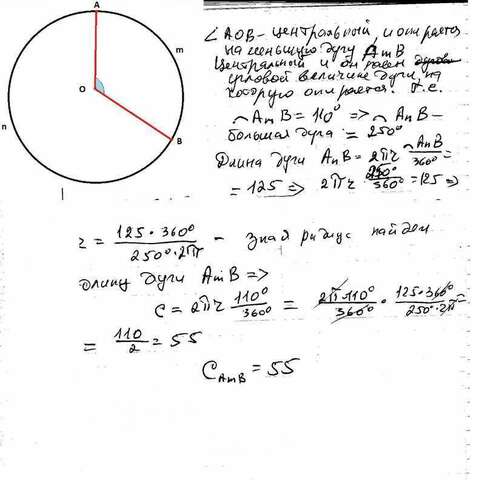 A
m
O
B
n
∠AOB - центральный, и опирается
на меньшую дугу AmB
Центральный и он равен
угловой величине дуги, на
которую опирается. Т.е.
◠AmB = 110° => ◠AnB -
большая дуга = 250°
Длина дуги AnB = 2πr ◠AnB/360° =
= 125 => 2πr 250°/360° = 125 =>
r = 125·360°/250°·2π - зная радиус найдем
длину дуги AmB =>
C = 2πr 110°/360° = 2π·110°/360° · 125·360°/250°·2π =
= 110/2 = 55
C AmB = 55